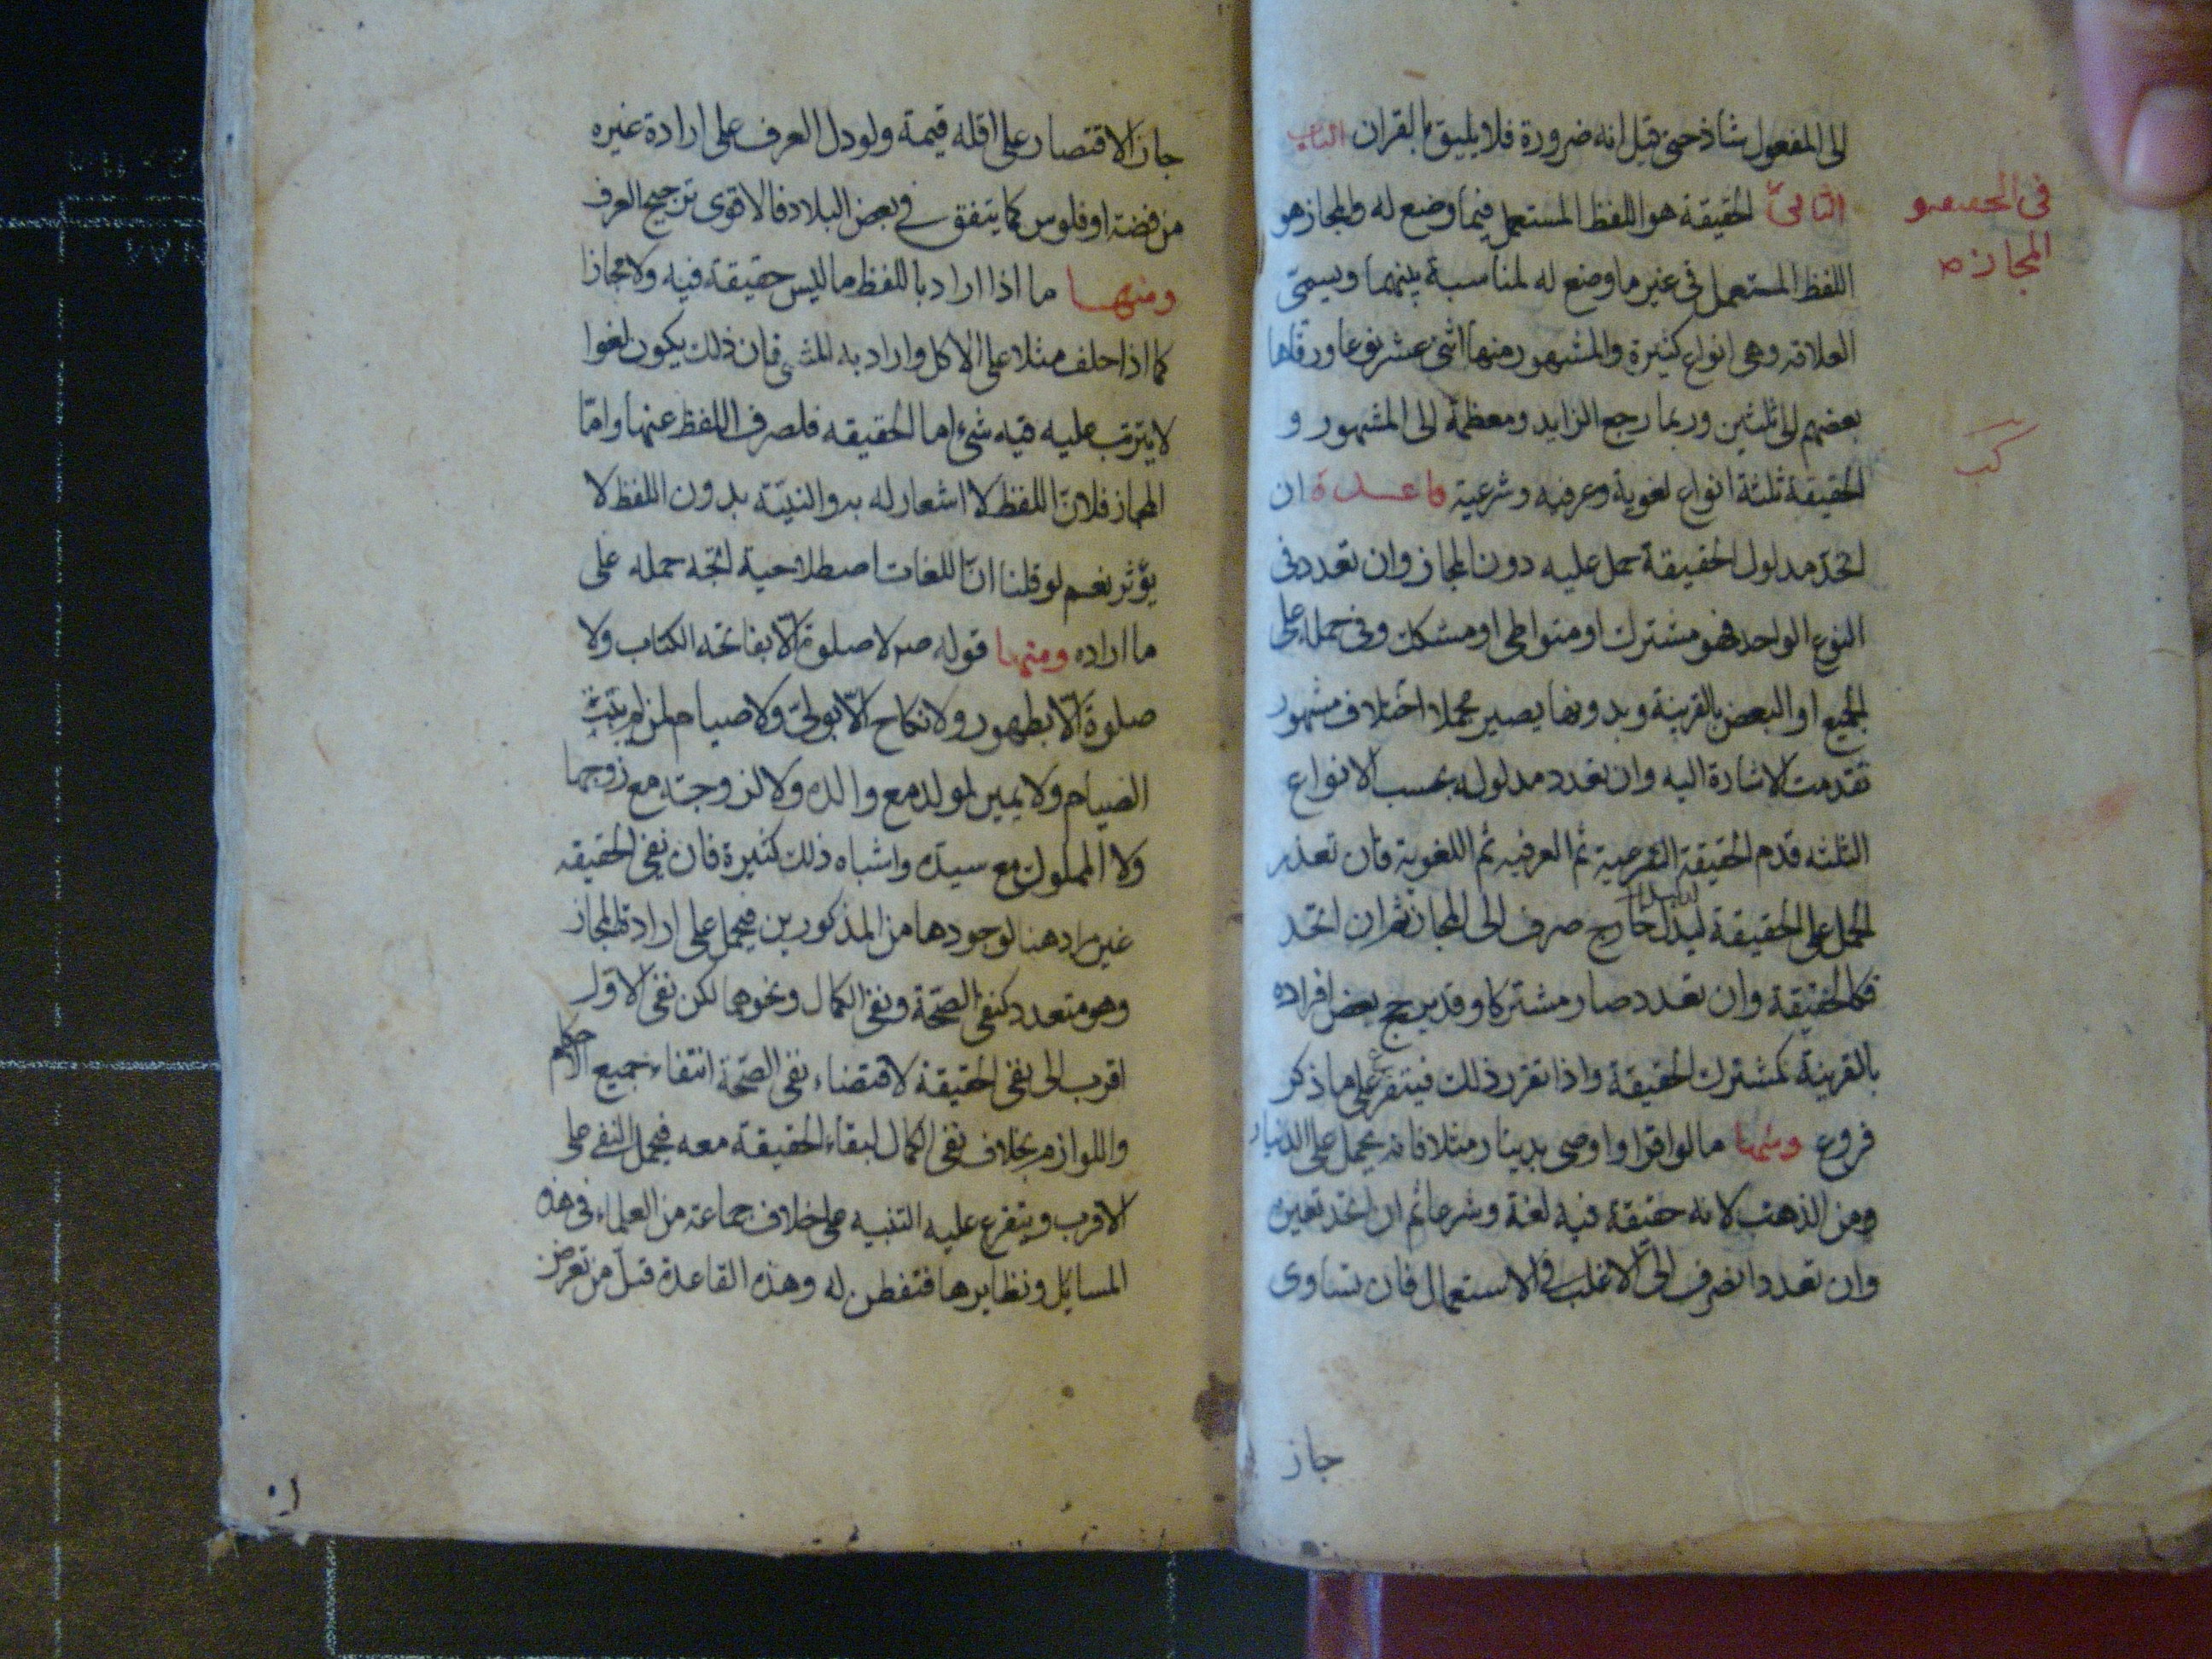 الى المفعول شاذ حتى قيل انه ضرورة فلا يليق بالقران الباب
الثانى الحقيقة هو اللفظ المستعمل فيما وضع له والمجاز هو
فى الحقيقه و
المجاز
اللفظ المستعمل فى غير ما وضع له لمناسبة بينهما ويسمّى
العلاقه وهى انواع كثيرة والمشهور منها اثنى عشر نوعا ورقاها
بعضهم الى ثلثين وربما رجع الزايد ومعظمه الى المشهور و
الحقيقة ثلثة انواع لغوية وعرفيه وشرعية قاعدة ان
اتحد مدلول الحقيقة حمل عليه دون المجاز وان تعدد فى
النوع الواحد فهو مشترك او متواطى او مشكك وفى حمله على
الجميع او البعض بالقرينة وبدونها يصير مجملا اختلاف مشهور
تقدمت الاشارة اليه وان تعدد مدلوله بحسب الانواع
الثلثه قدم الحقيقة الشرعية ثم العرفيه ثم اللغوية فان تعذر
الحمل على الحقيقة لدليل خارج صرف الى المجاز ثم ان اتحد
فكالحقيقة وان تعدد صار مشتركا وقد يرجح بعض افراده
بالقرينة كمشترك الحقيقة واذا تقرر ذلك فيتفرع على ما ذكر
فروع ومنها ما لو اقر او اوصى بدينار مثلا فانه يحمل على الدينار
ومن الذهب لانه حقيقة فيه لغة وشرعا ثم ان اتحد تعين
وان تعدد انصرف الى الاغلب فى الاستعمال فان تساوى
جاز
جاز الاقتصار على اقله قيمة ولو دل العرف على ارادة غيره
من فضة او فلوس كما يتفق فى بعض البلاد فالاقوى ترجيح العرف
ومنها ما اذا اراد باللفظ ما ليس حقيقة فيه ولا مجازا
كما اذا حلف مثلا على الاكل واراد به المشى فان ذلك يكون لغوا
لا يترتب عليه فيه شئ اما الحقيقه فلصرف اللفظ عنها وامّا
المجاز فلانّ اللفظ لا اشعار له به والنيّة بدون اللفظ لا
يؤثر نعم لو قلنا انّ اللغات اصطلاحية اتجه حمله على
ما اراده ومنها قوله صم لا صلوة الّا بفاتحه الكتاب ولا
صلوة الّا بطهور ولا نكاح الّا بولىّ ولا صيام لمن لم يبيّت
الصيام ولا يمين لمولد مع والده ولا لزوجته مع زوجها
ولا المملوك مع سيده واشباه ذلك كثيرة فان نفى الحقيقه
غير مراد هنا لوجودها من المذكورين فيحمل على ارادة المجاز
وهو متعدد كنفى الصحّة ونفى الكمال ونحوهما لكن نفى الاول
اقرب الى نفى الحقيقة لاقتضاء نفى الصحّة انتفاء جميع الاحكام
واللوازم بخلاف نفى الكمال لبقاء الحقيقة معه فيحمل النفى على
الاقرب ويتفرع عليه التنبيه على خلاف جماعة من العلماء فى هذه
المسايل ونظايرها فتفطن له وهذه القاعدة قبل من تعرض